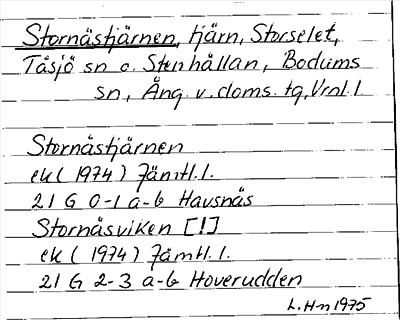 Stornästjärnen, tjärn, Storselet,
Tåsjö sn o. Stenhållan, Bodums
sn, Ång. v. doms. tg, Vrnl. l
Stornästjärnen
ek (1974) Jämtl. l.
21 G 0-1 a-b Havsnäs
Stornäsviken [!]
ek (1974) Jämtl. l.
21 G 2-3 a-b Hoverudden
L. H-n 1975